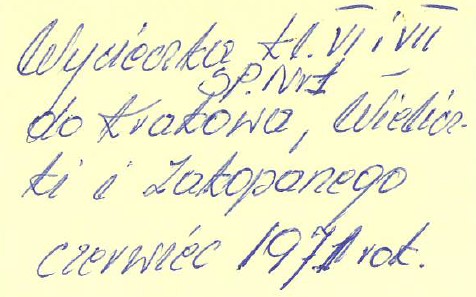 Wycieczka kl. VI i VII
SP. Nr 1
do Krakowa, Wielicz-
ki i Zakopanego
czerwiec 1971 rok.